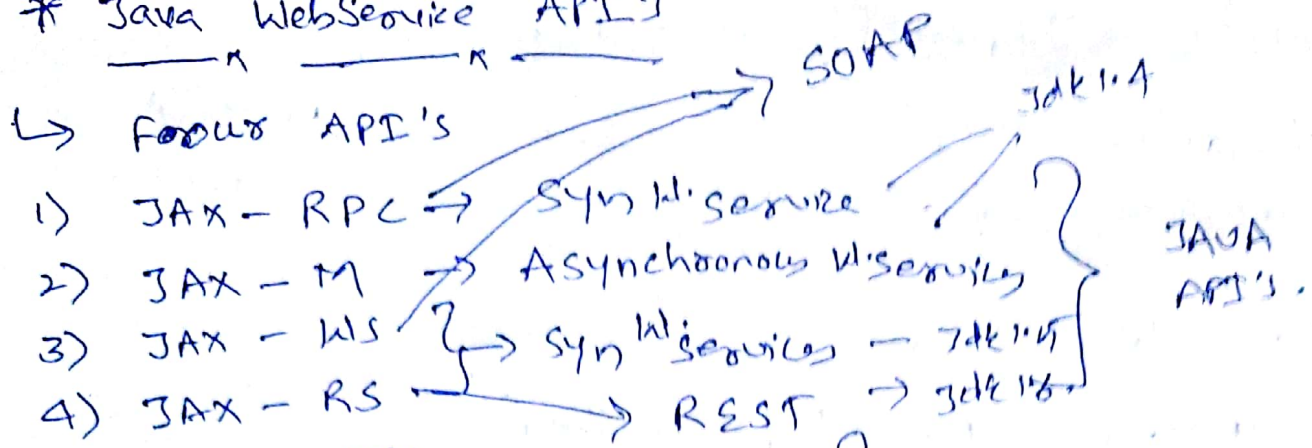 * Java WebService API's
↳ Foour API's
SOAP
Jdk 1.4
1) JAX - RPC → Syn W.service
2) JAX - M → Asynchoonous W.services
3) JAX - WS → Syn W.services - Jdk 1.5
4) JAX - RS → REST → Jdk 1.6
JAVA
API's.